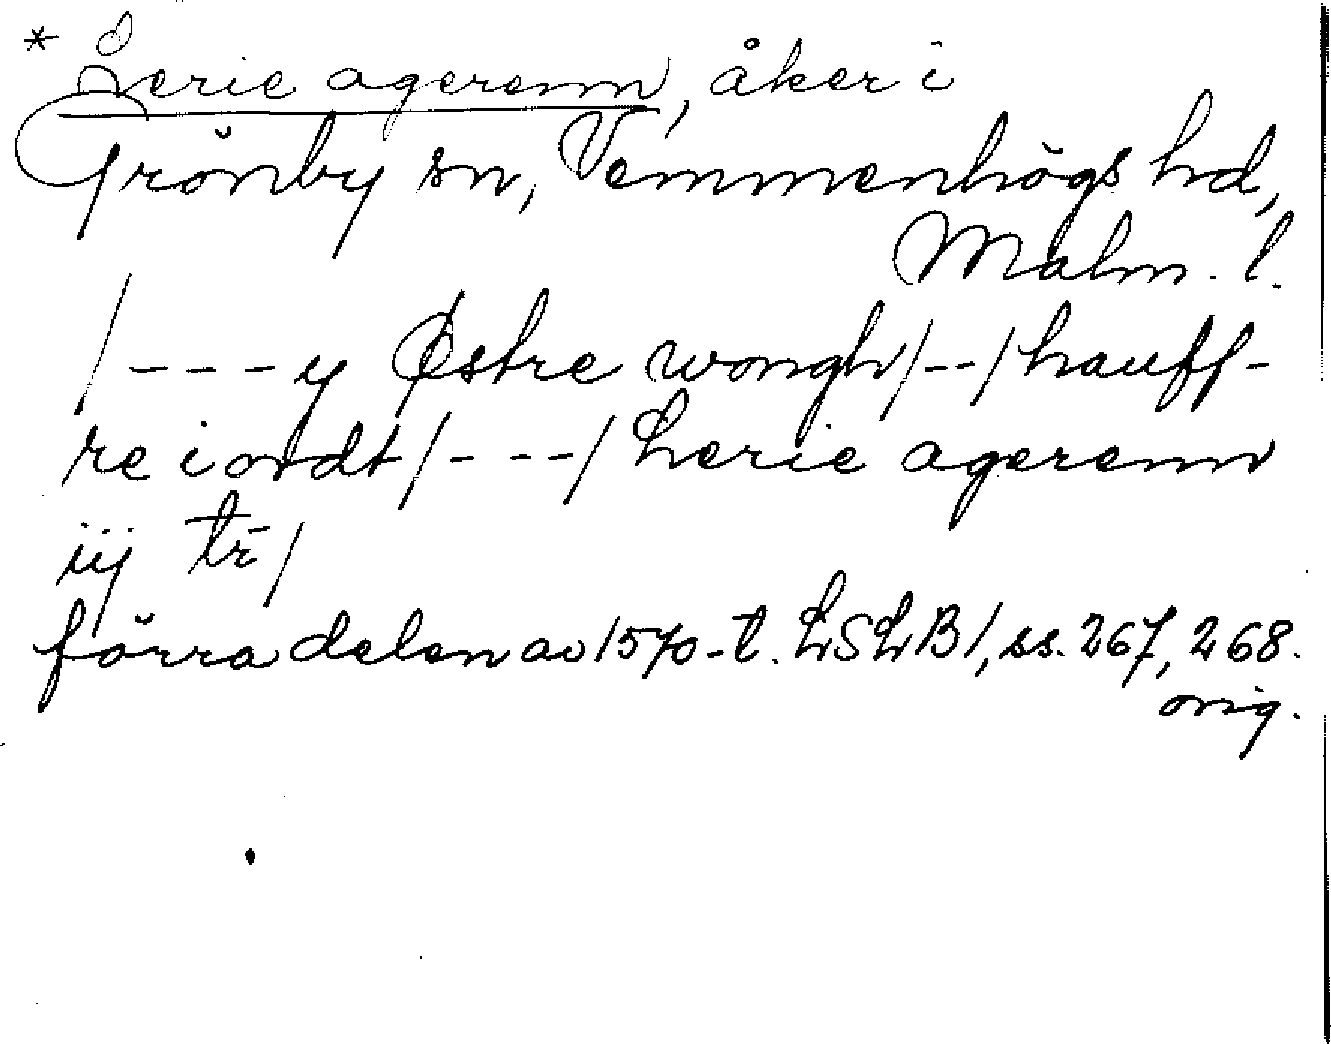 * Lerie agerenn, åker i
Grönby sn, Vemmenhögs hd,
Malm. l.
/---y Østre wongh/--/hauff-
re iordt/---/Lerie agerenn
iij tr̄/
förra delen av 1570-t. LSLB1, ss. 267, 268.
orig.